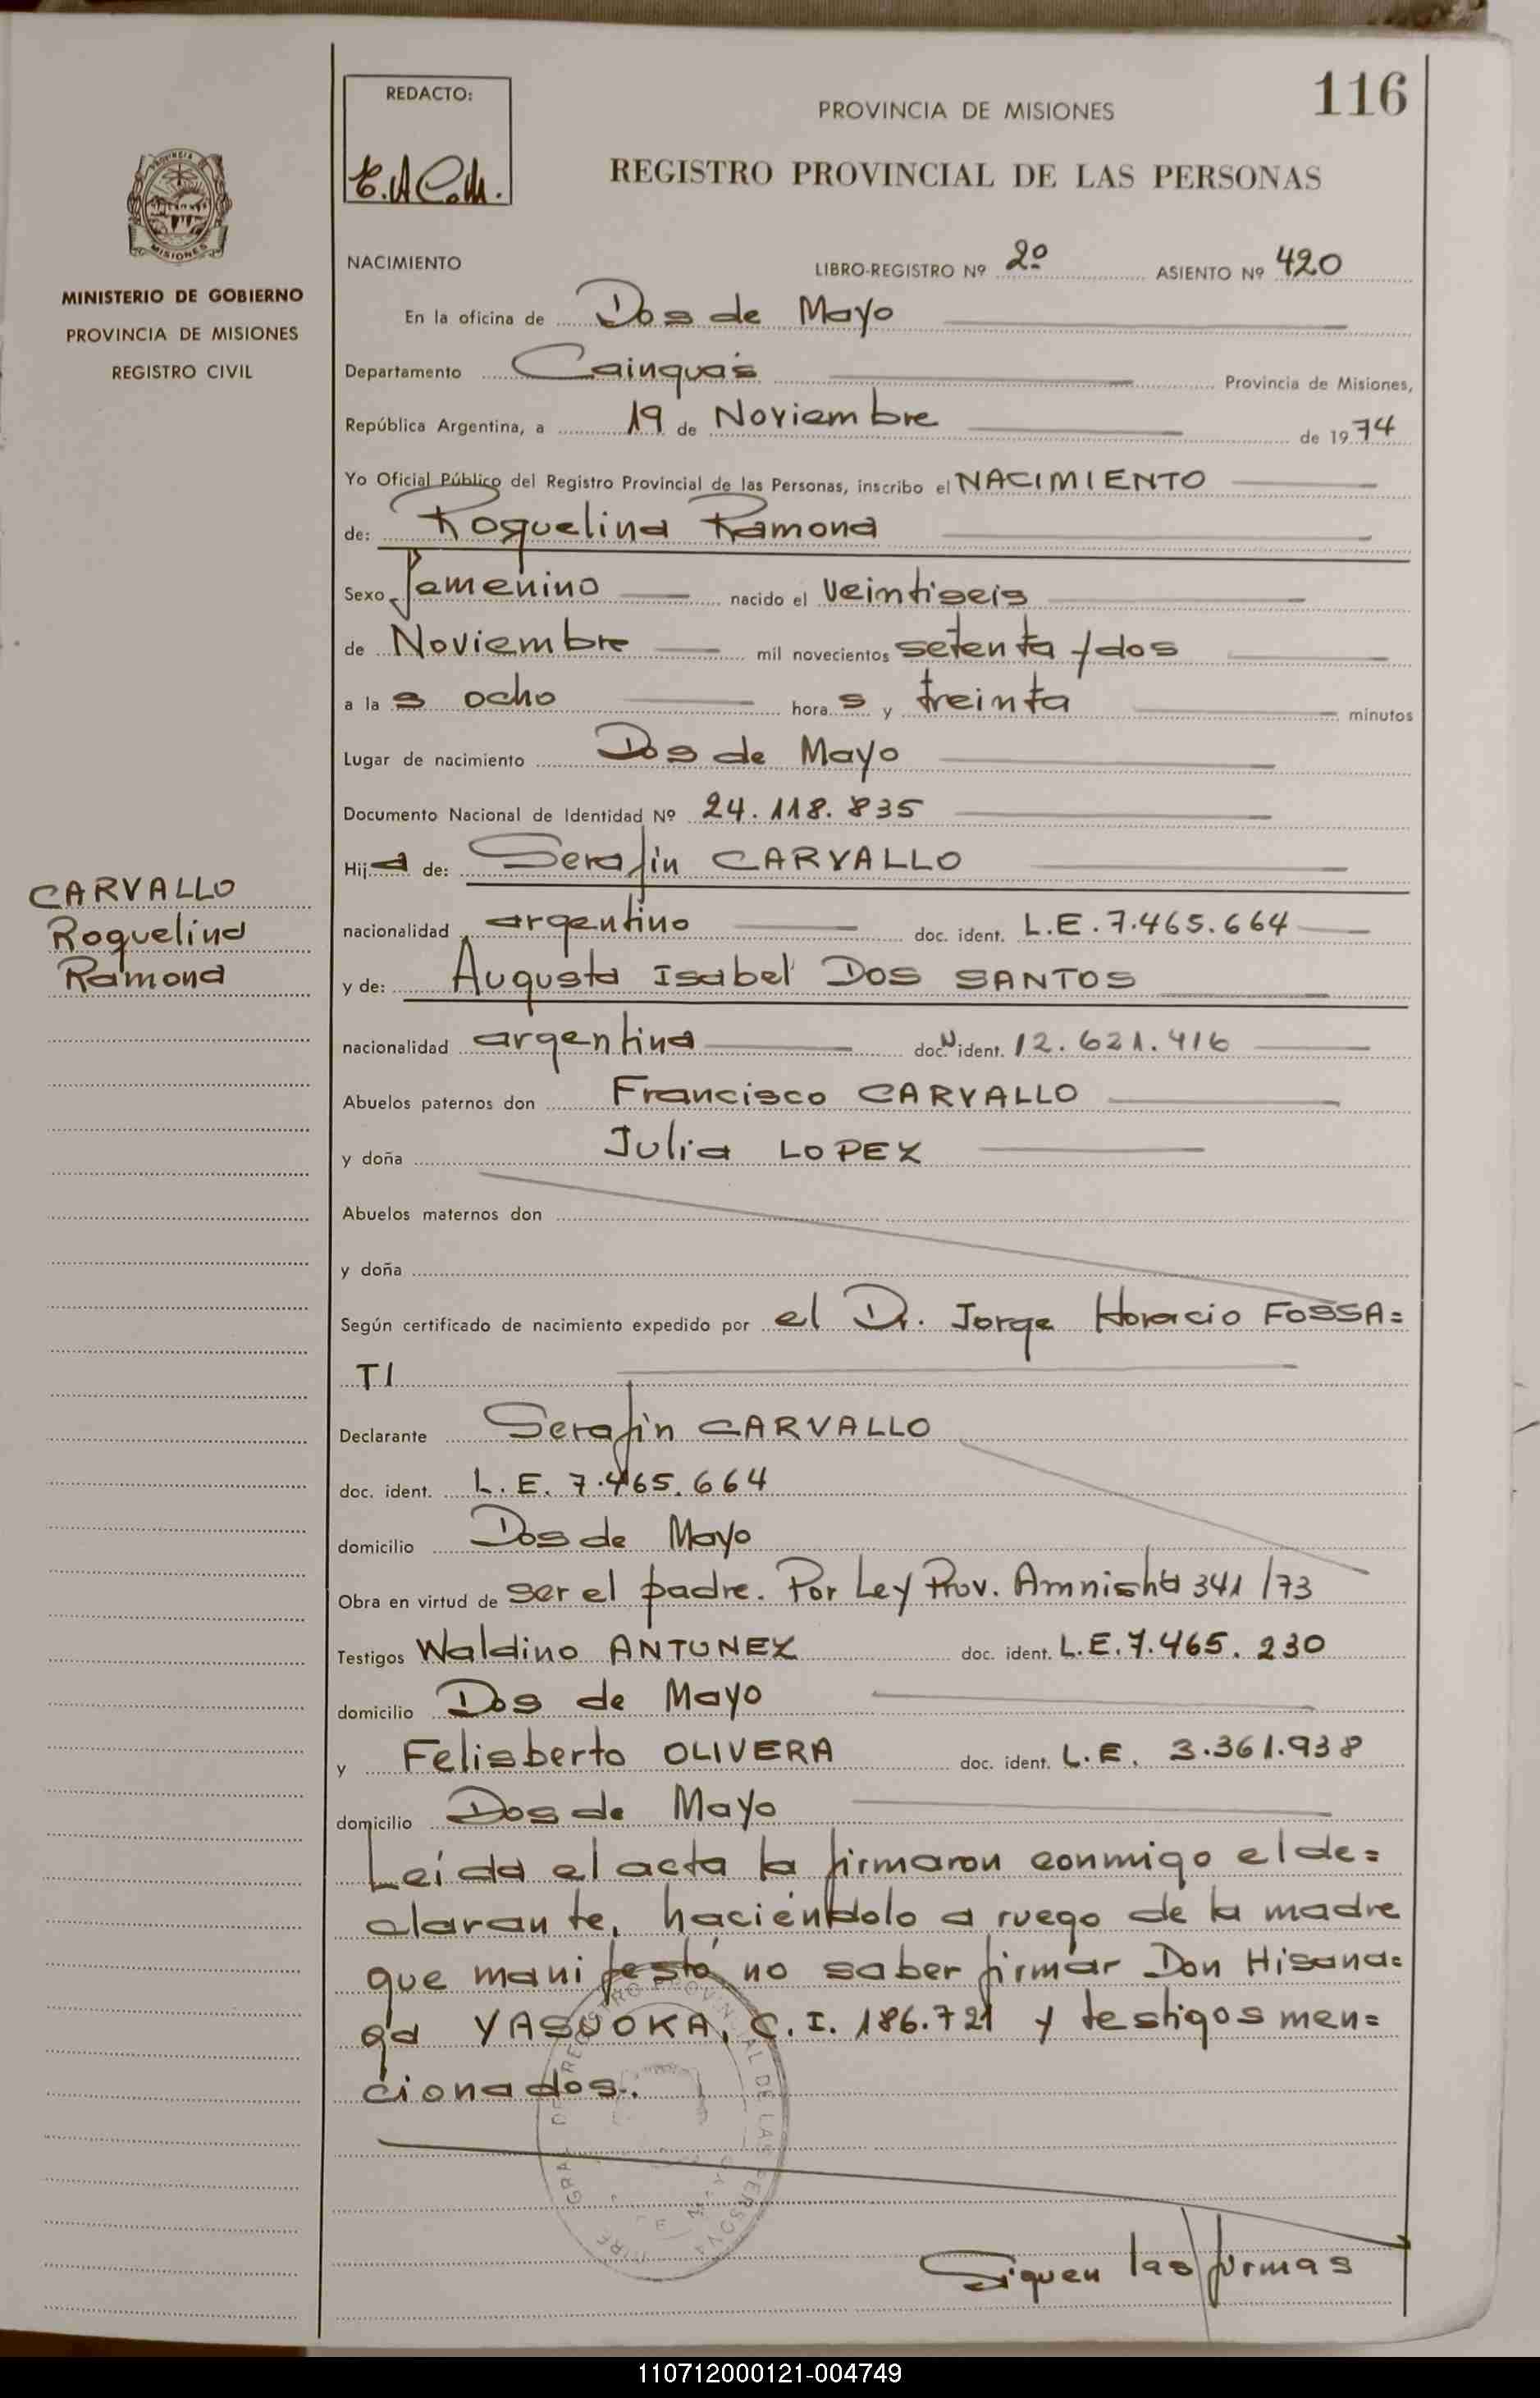 116
REDACTO:
PROVINCIA DE MISIONES
REGISTRO PROVINCIAL DE LAS PERSONAS
MISIONES
MINISTERIO DE GOBIERNO
PROVINCIA DE MISIONES
REGISTRO CIVIL
NACIMIENTO LIBRO-REGISTRO Nº 2º ASIENTO Nº 420
En la oficina de Dos de Mayo
Departamento Cainguás Provincia de Misiones,
República Argentina, a 19 de Noviembre de 1974
Yo Oficial Público del Registro Provincial de las Personas, inscribo el NACIMIENTO
de: Roquelina Ramona
Sexo femenino nacido el veintiseis
de Noviembre mil novecientos setenta y dos
a las ocho horas y treinta minutos
Lugar de nacimiento Dos de Mayo
Documento Nacional de Identidad Nº 24.118.835
Hija de: Serafin CARVALLO
CARVALLO
Roquelina
Ramona
nacionalidad argentino doc. ident. L.E. 7.465.664
y de: Augusta Isabel DOS SANTOS
nacionalidad argentina doc. N ident. 12.621.416
Abuelos paternos don Francisco CARVALLO
y doña Julia LOPEZ
Abuelos maternos don
y doña
Según certificado de nacimiento expedido por el Dr. Jorge Horacio FOSSA=
TI
Declarante Serafin CARVALLO
doc. ident. L.E. 7.465.664
domicilio Dos de Mayo
Obra en virtud de ser el padre. Por Ley Prov. Amnistia 341/73
Testigos Waldino ANTUNEZ doc. ident. L.E. 7.465.230
domicilio Dos de Mayo
y Felisberto OLIVERA doc. ident. L.E. 3.361.938
domicilio Dos de Mayo
Leída el acta la firmaron conmigo el de=
clarante, haciéndolo a ruego de la madre
que manifestó no saber firmar Don Hisana=
ga YASUOKA, C.I. 186.721 y testigos men=
cionados.
Siguen las firmas
110712000121-004749